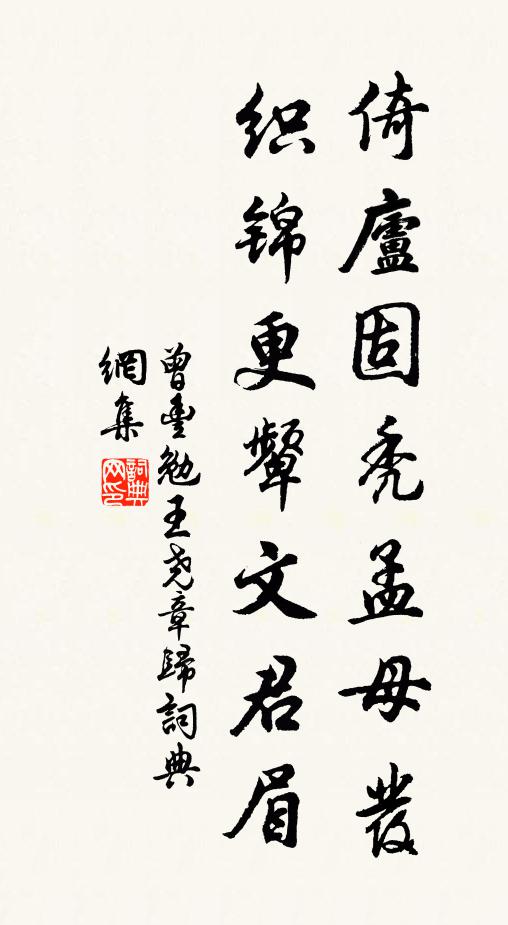 倚廬固禿孟母髮
织锦更颦文君眉
曾豊勉王尧章歸詞典
網集
詞典网印